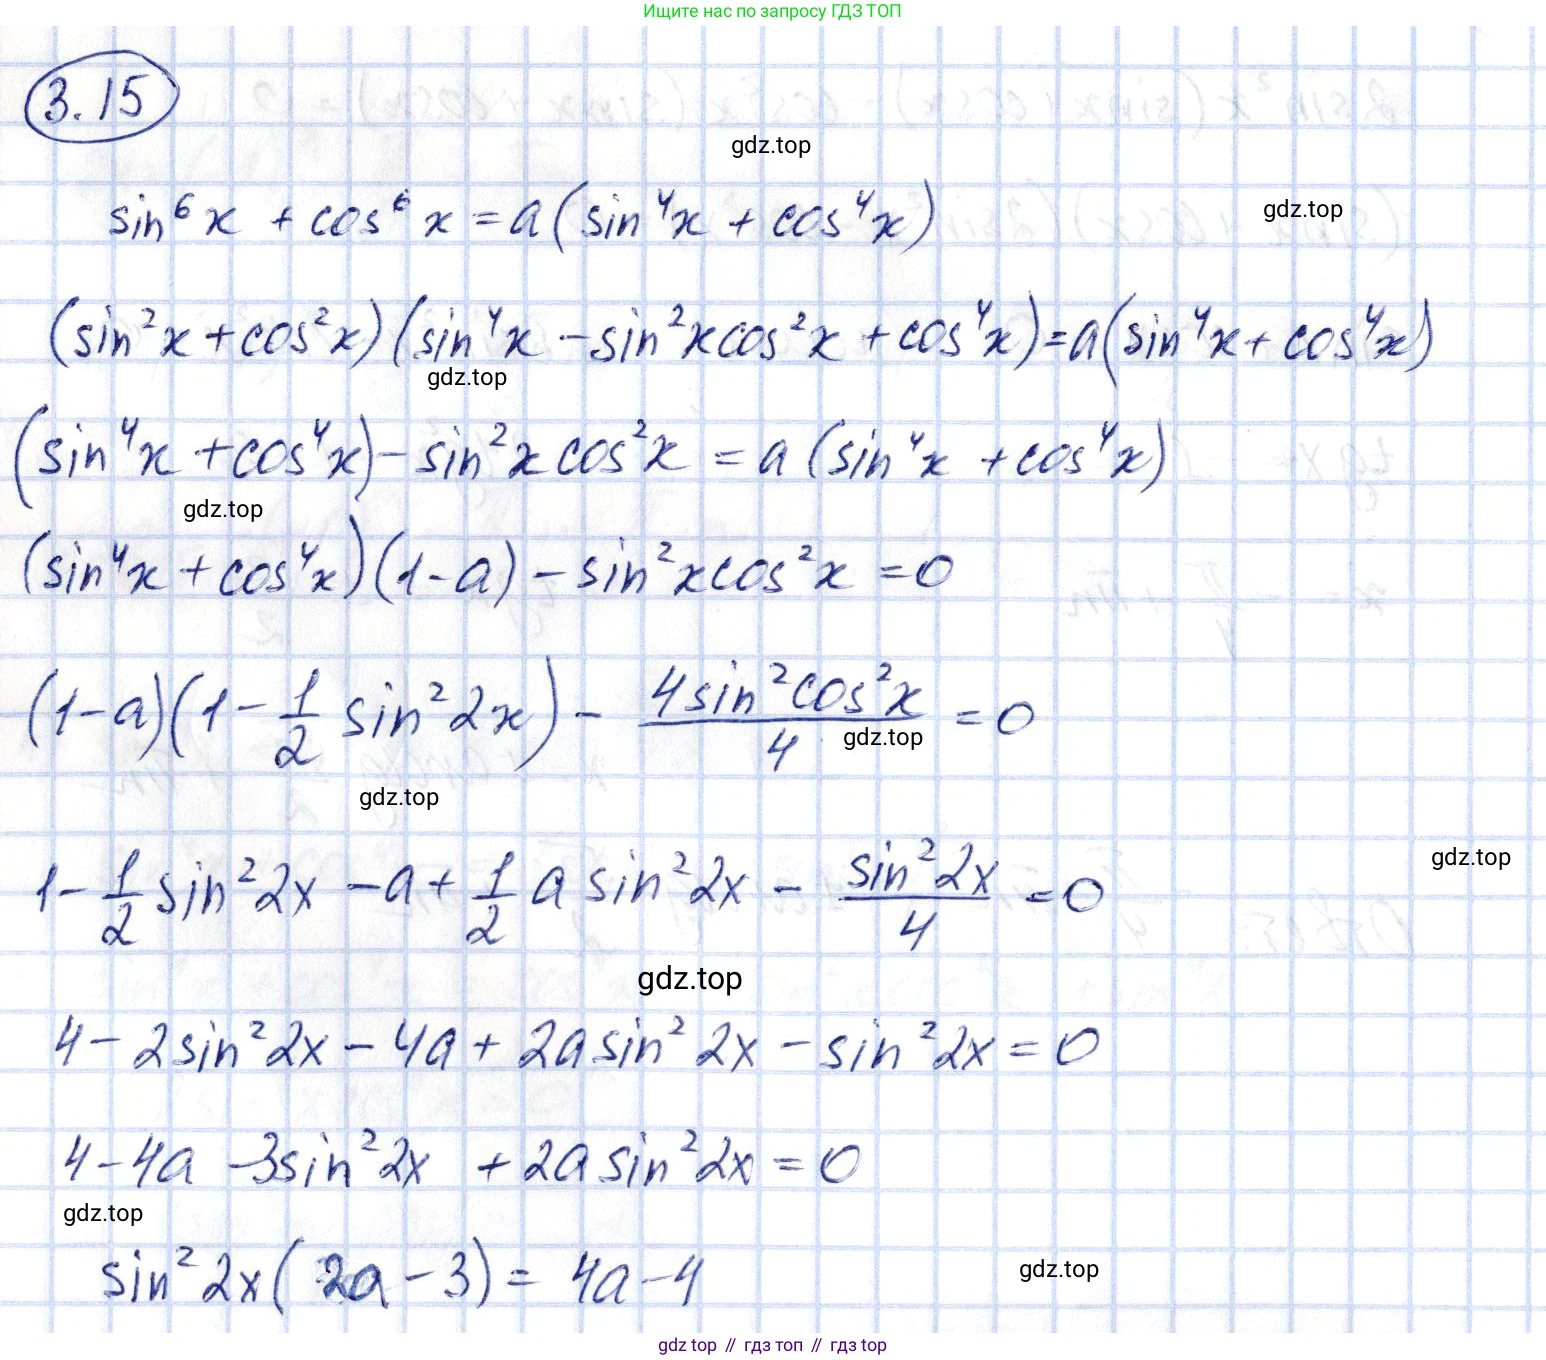 Ищите нас по запросу ГДЗ ТОП
3.15
gdz.top
sin⁶x + cos⁶x = a(sin⁴x + cos⁴x)
gdz.top
(sin²x + cos²x)(sin⁴x - sin²xcos²x + cos⁴x) = a(sin⁴x + cos⁴x)
gdz.top
(sin⁴x + cos⁴x) - sin²x cos²x = a (sin⁴x + cos⁴x)
gdz.top
(sin⁴x + cos⁴x)(1-a) - sin²xcos²x = 0
(1-a)(1 - 1/2 sin²2x) - 4sin²cos²x/4 = 0
gdz.top
gdz.top
1 - 1/2 sin²2x - a + 1/2 a sin²2x - sin²2x/4 = 0
gdz.top
gdz.top
4 - 2sin²2x - 4a + 2a sin²2x - sin²2x = 0
4 - 4a - 3sin²2x + 2a sin²2x = 0
gdz.top
sin²2x(2a - 3) = 4a - 4
gdz.top
gdz top // гдз топ // гдз top